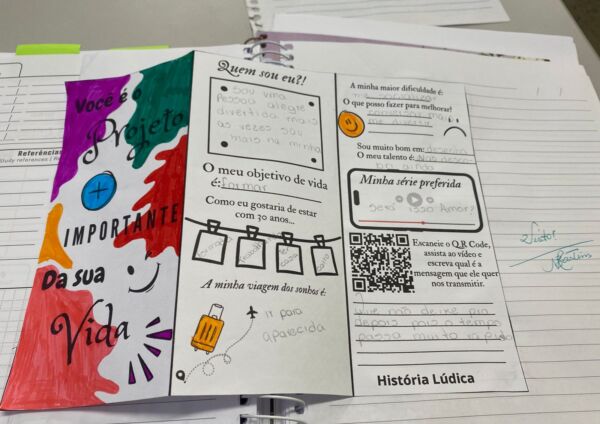 Você é o
Projeto
+
IMPORTANTE
Da sua
Vida
Quem sou eu?!
Sou uma
Pessoa alegre
divertida mais
as vezes sou
mais na minha
O meu objetivo de vida
é: formar
Como eu gostaria de estar
com 30 anos...
casa
A minha viagem dos sonhos é:
ir para
aparecida
A minha maior dificuldade é:
me
O que posso fazer para melhorar?
conversar
me divertir
Sou muito bom em: desenho
O meu talento é: Não desco
bri ainda
Minha série preferida
Será isso Amor?
Escaneie o QR Code,
assista ao vídeo e
escreva qual é a
mensagem que ele quer
nos transmitir.
que não deixe pra
depois pois o tempo
passa muito rápido
História Lúdica
Referências
Study references
Visto!